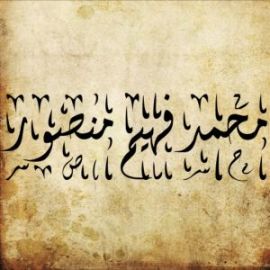 محمد فهيم منصور